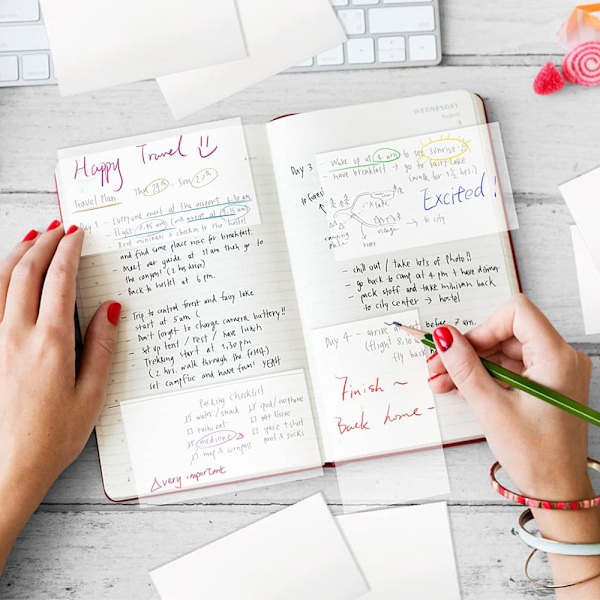 Happy Travel !!
Travel Plan
Day 1 - Everyone meet at the airport 6.30 am
Rent minivan & checkin to the hostel
and find some place nice for breakfast.
- Meet our guide at 11 am then go to
the canyons (2 hrs drive)
- Back to hostel at 6 pm.
- Trip to central forest and fairy lake
start at 5 am
- Don't forget to charge camera battery!!
- Set up tent / rest / have lunch
- Trekking start at 1.30 pm
(2 hrs. walk through the forest)
- set campfire and have fun! YEAH
Packing checklist
water / snack
ipod / earphone
raincoat
wet tissue
medicine
map &
& socks
△ very important
WEDNESDAY
August
Day 3 - Wake up at 4 am to see sunrise
have breakfast → go to fairy lake
to forest
(walk for 1½ hrs.)
Excited!
→ to city
camping
river
village
- chill out / take lots of photo!!
- go back to camp at 4 pm + have dinner
- pack stuff and take minivan back
to city center → hostel
Day 4 - arrive before 7 am.
(flight 8:10
fly back
Finish ~
Back home ~